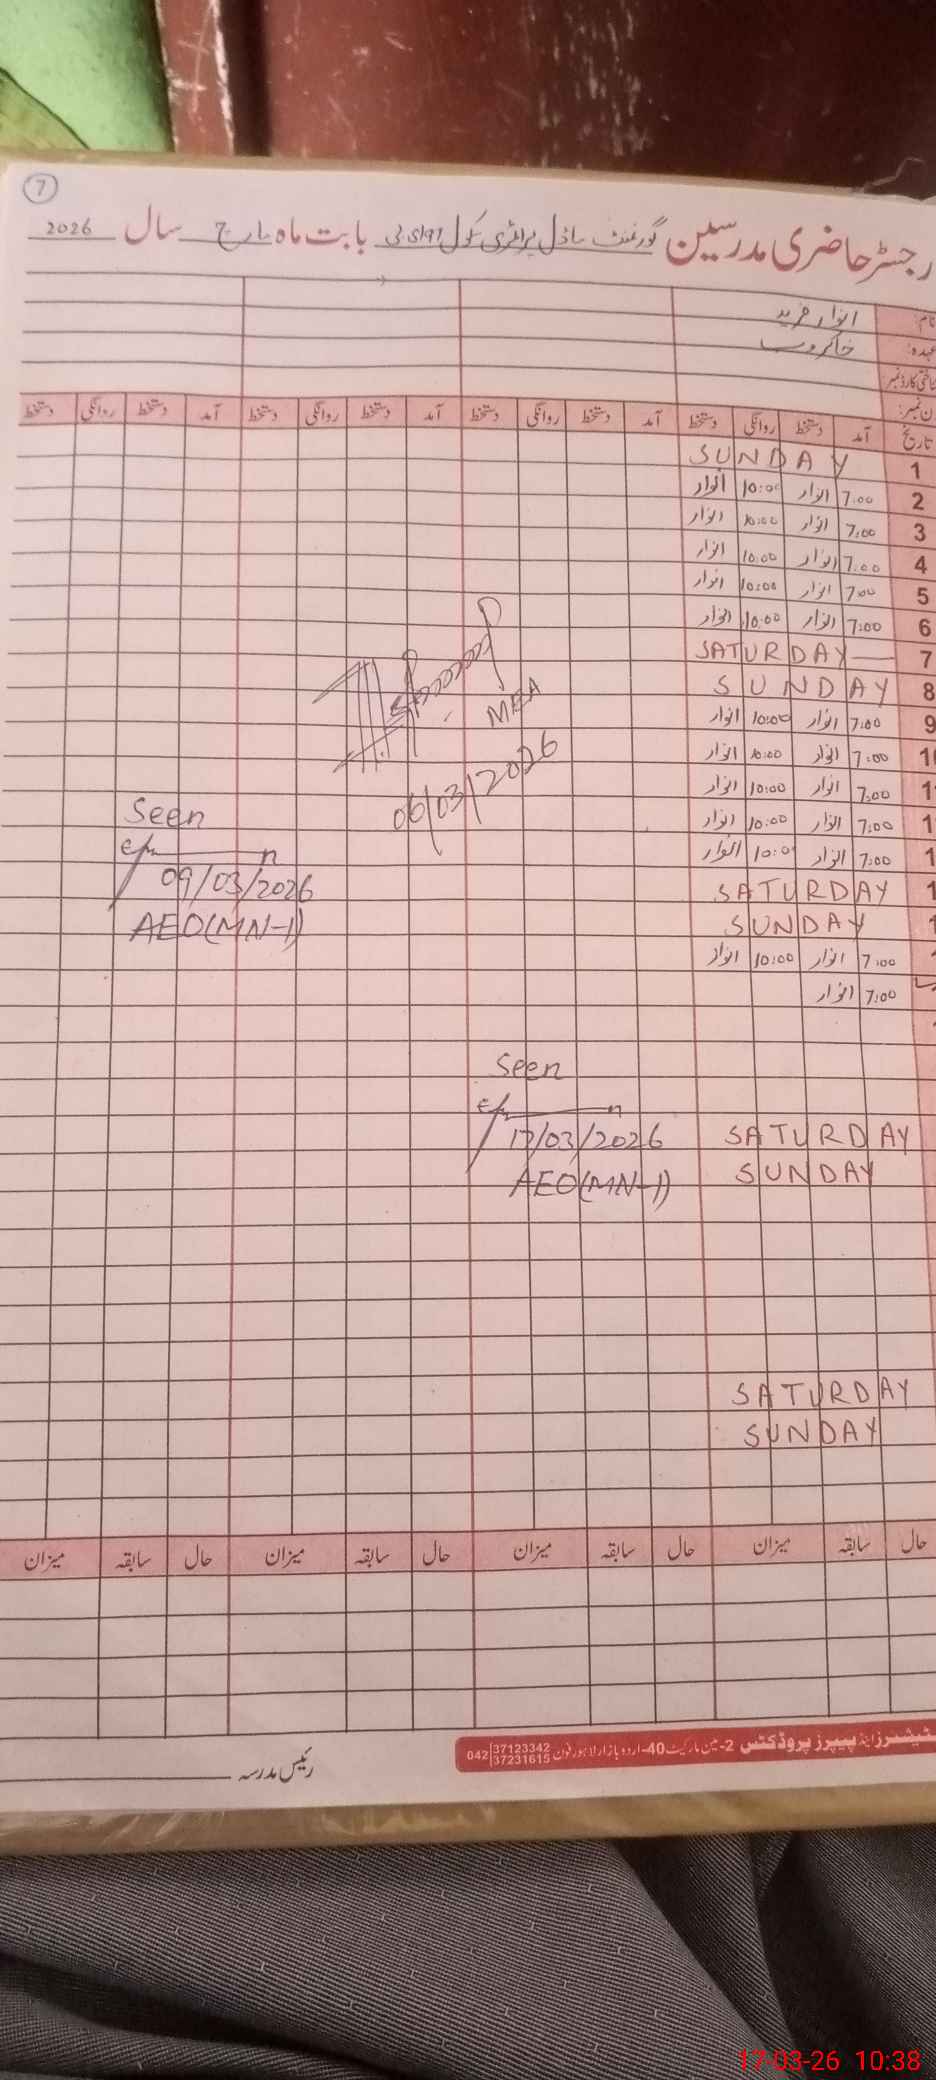 7
رجسٹر حاضری مدرسین گورنمنٹ ماڈل پرائمری سکول بابت ماہ مارچ سال 2026
نام: انوار فرید
عہدہ: خاکروب
شناختی کارڈ نمبر:
ن نمبر:
تاریخ آمد دستخط روانگی دستخط آمد دستخط روانگی دستخط آمد دستخط روانگی دستخط آمد دستخط روانگی دستخط
1 SUNDAY
2 7:00 انوار 10:00 انوار
3 7:00 انوار 10:00 انوار
4 7:00 انوار 10:00 انوار
5 7:00 انوار 10:00 انوار
6 7:00 انوار 10:00 انوار
7 SATURDAY
8 SUNDAY
9 7:00 انوار 10:00 انوار
10 7:00 انوار 10:00 انوار
1 7:00 انوار 10:00 انوار
1 7:00 انوار 10:00 انوار
1 7:00 انوار 10:00 انوار
1 SATURDAY
1 SUNDAY
7:00 انوار 10:00 انوار
7:00 انوار
MEA
06/03/2026
Seen
09/03/2026
AEO(MN-1)
Seen
17/03/2026
AEO(MN-1)
SATURDAY
SUNDAY
SATURDAY
SUNDAY
حال سابقہ میزان حال سابقہ میزان حال سابقہ میزان حال سابقہ میزان
سٹیشنرز اینڈ پیپرز پروڈکٹس 2-مین مارکیٹ 40-اردو بازار لاہور فون 042 37123342 37231615
رئیس مدرسہ
17-03-26 10:38